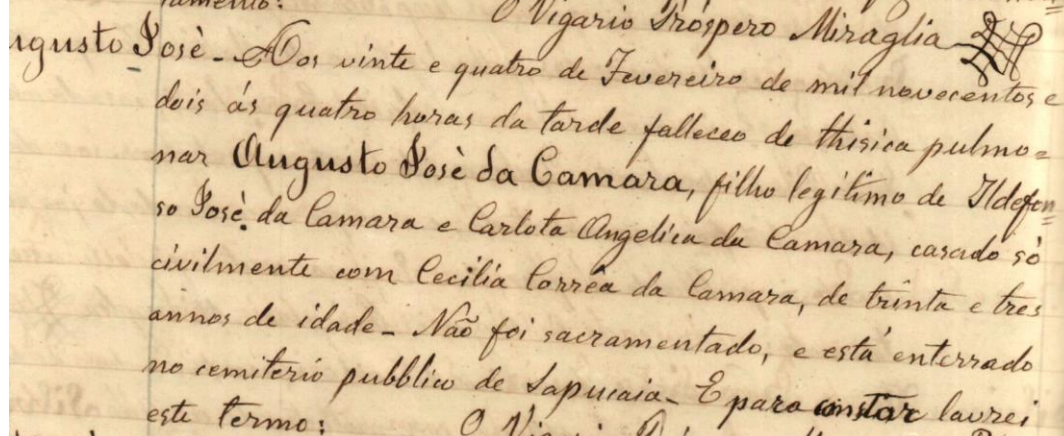 O Vigario Próspero Miraglia
Augusto José - Aos vinte e quatro de Fevereiro de mil novecentos e
dois ás quatro horas da tarde falleceo de thisica pulmo=
nar Augusto José da Camara, filho legitimo de Ildefon=
so José da Camara e Carlota Angelica da Camara, casado só
civilmente com Cecilia Corrêa da Camara, de trinta e tres
annos de idade - Não foi sacramentado, e está enterrado
no cemiterio pubblico de Sapucaia - E para constar lavrei
este termo: